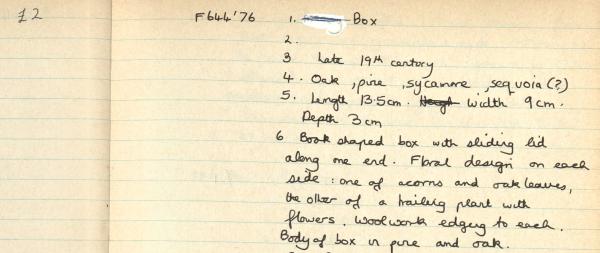 £2
F644'76 1. Box
2.
3 Late 19th century
4. Oak, pine, sycamore, sequoia (?)
5. Length 13.5cm. Heigh width 9cm.
Depth 3cm
6 Book shaped box with sliding lid
along one end. Floral design on each
side: one of acorns and oak leaves,
the other of a trailing plant with
flowers. Woolwork edging to each.
Body of box in pine and oak.